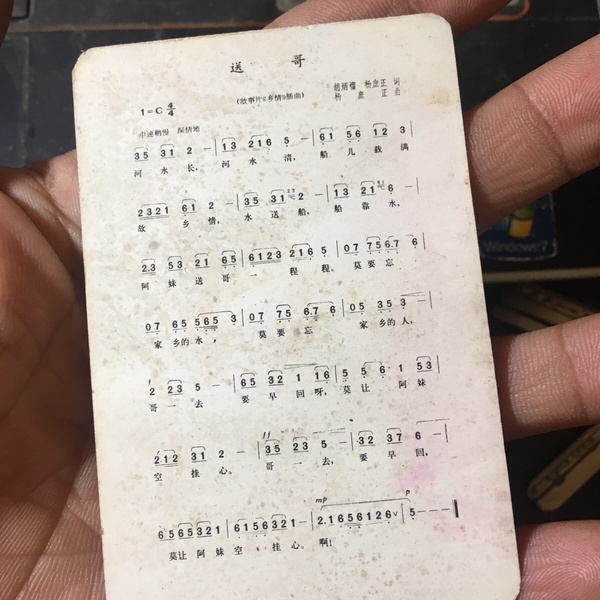 送 哥
(故事片《乡情》插曲)
胡炳榴 杨庶正 词
杨 庶 正 曲
1=C 4/4
中速稍慢 深情地
35 31 2 - | 13 216 5 - | 61 56 12 3 |
河 水 长, 河 水 清, 船 儿 载 满
2321 61 2 - | 35 31 2 - | 13 21 6 - |
故 乡 情, 水 送 船, 船 靠 水,
23 53 21 65 | 6123 2165 | 07 75 67 6 |
阿 妹 送 哥 一 程 程。 莫要 忘
07 65 565 3 | 07 75 67 6 | 05 35 3 - |
家 乡的 水, 莫要 忘 家 乡的 人,
2 23 5 - | 65 32 1 16 | 5 5 6 1 53 |
哥 一 去 要 早 回呀, 莫 让 阿 妹
212 31 2 - | 35 23 5 - | 32 37 6 - |
空 挂 心。 哥 一 去, 要 早 回,
65 65 321 | 6156 321 - | 2.165 6126 v | 5 - - - ‖
莫让 阿 妹 空 挂 心。 啊!
mp p
Windows 7